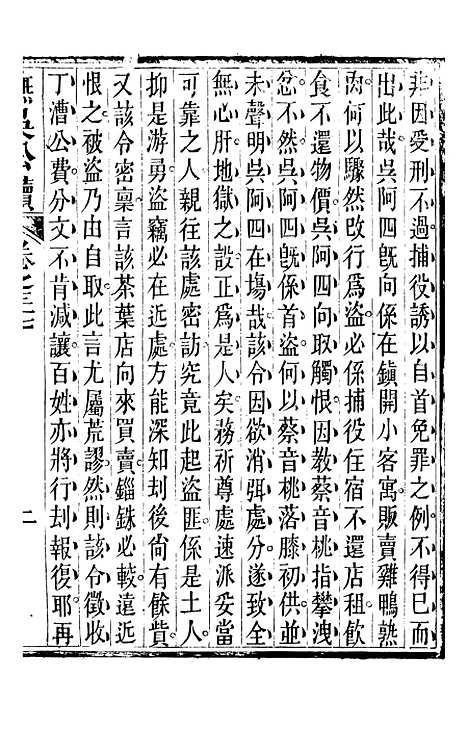 非因受刑不過捕役誘以自首免罪之例不得已而
出此哉吳阿四旣向係在鎮開小客寓販賣雞鴨熟
肉何以驟然改行爲盜必係捕役住宿不還店租飲
食不還物價吳阿四向取觸恨因教蔡音桃指攀洩
忿不然吳阿四旣係首盜何以蔡音桃落膝初供並
未聲明吳阿四在塲哉該令因欲消弭處分遂致全
無心肝地獄之設正爲是人矣務祈尊處速派妥當
可靠之人親往該處密訪究竟此起盜匪係是土人
抑是游勇盜竊必在近處方能深知刦後尙有餘貲
又該令密稟言該茶葉店向來買賣錙銖必較遠近
恨之被盜乃由自取此言尤屬荒謬然則該令徵收
丁漕公費分文不肯減讓百姓亦將行刦報復耶再
撫吳公牘 卷七三七 二